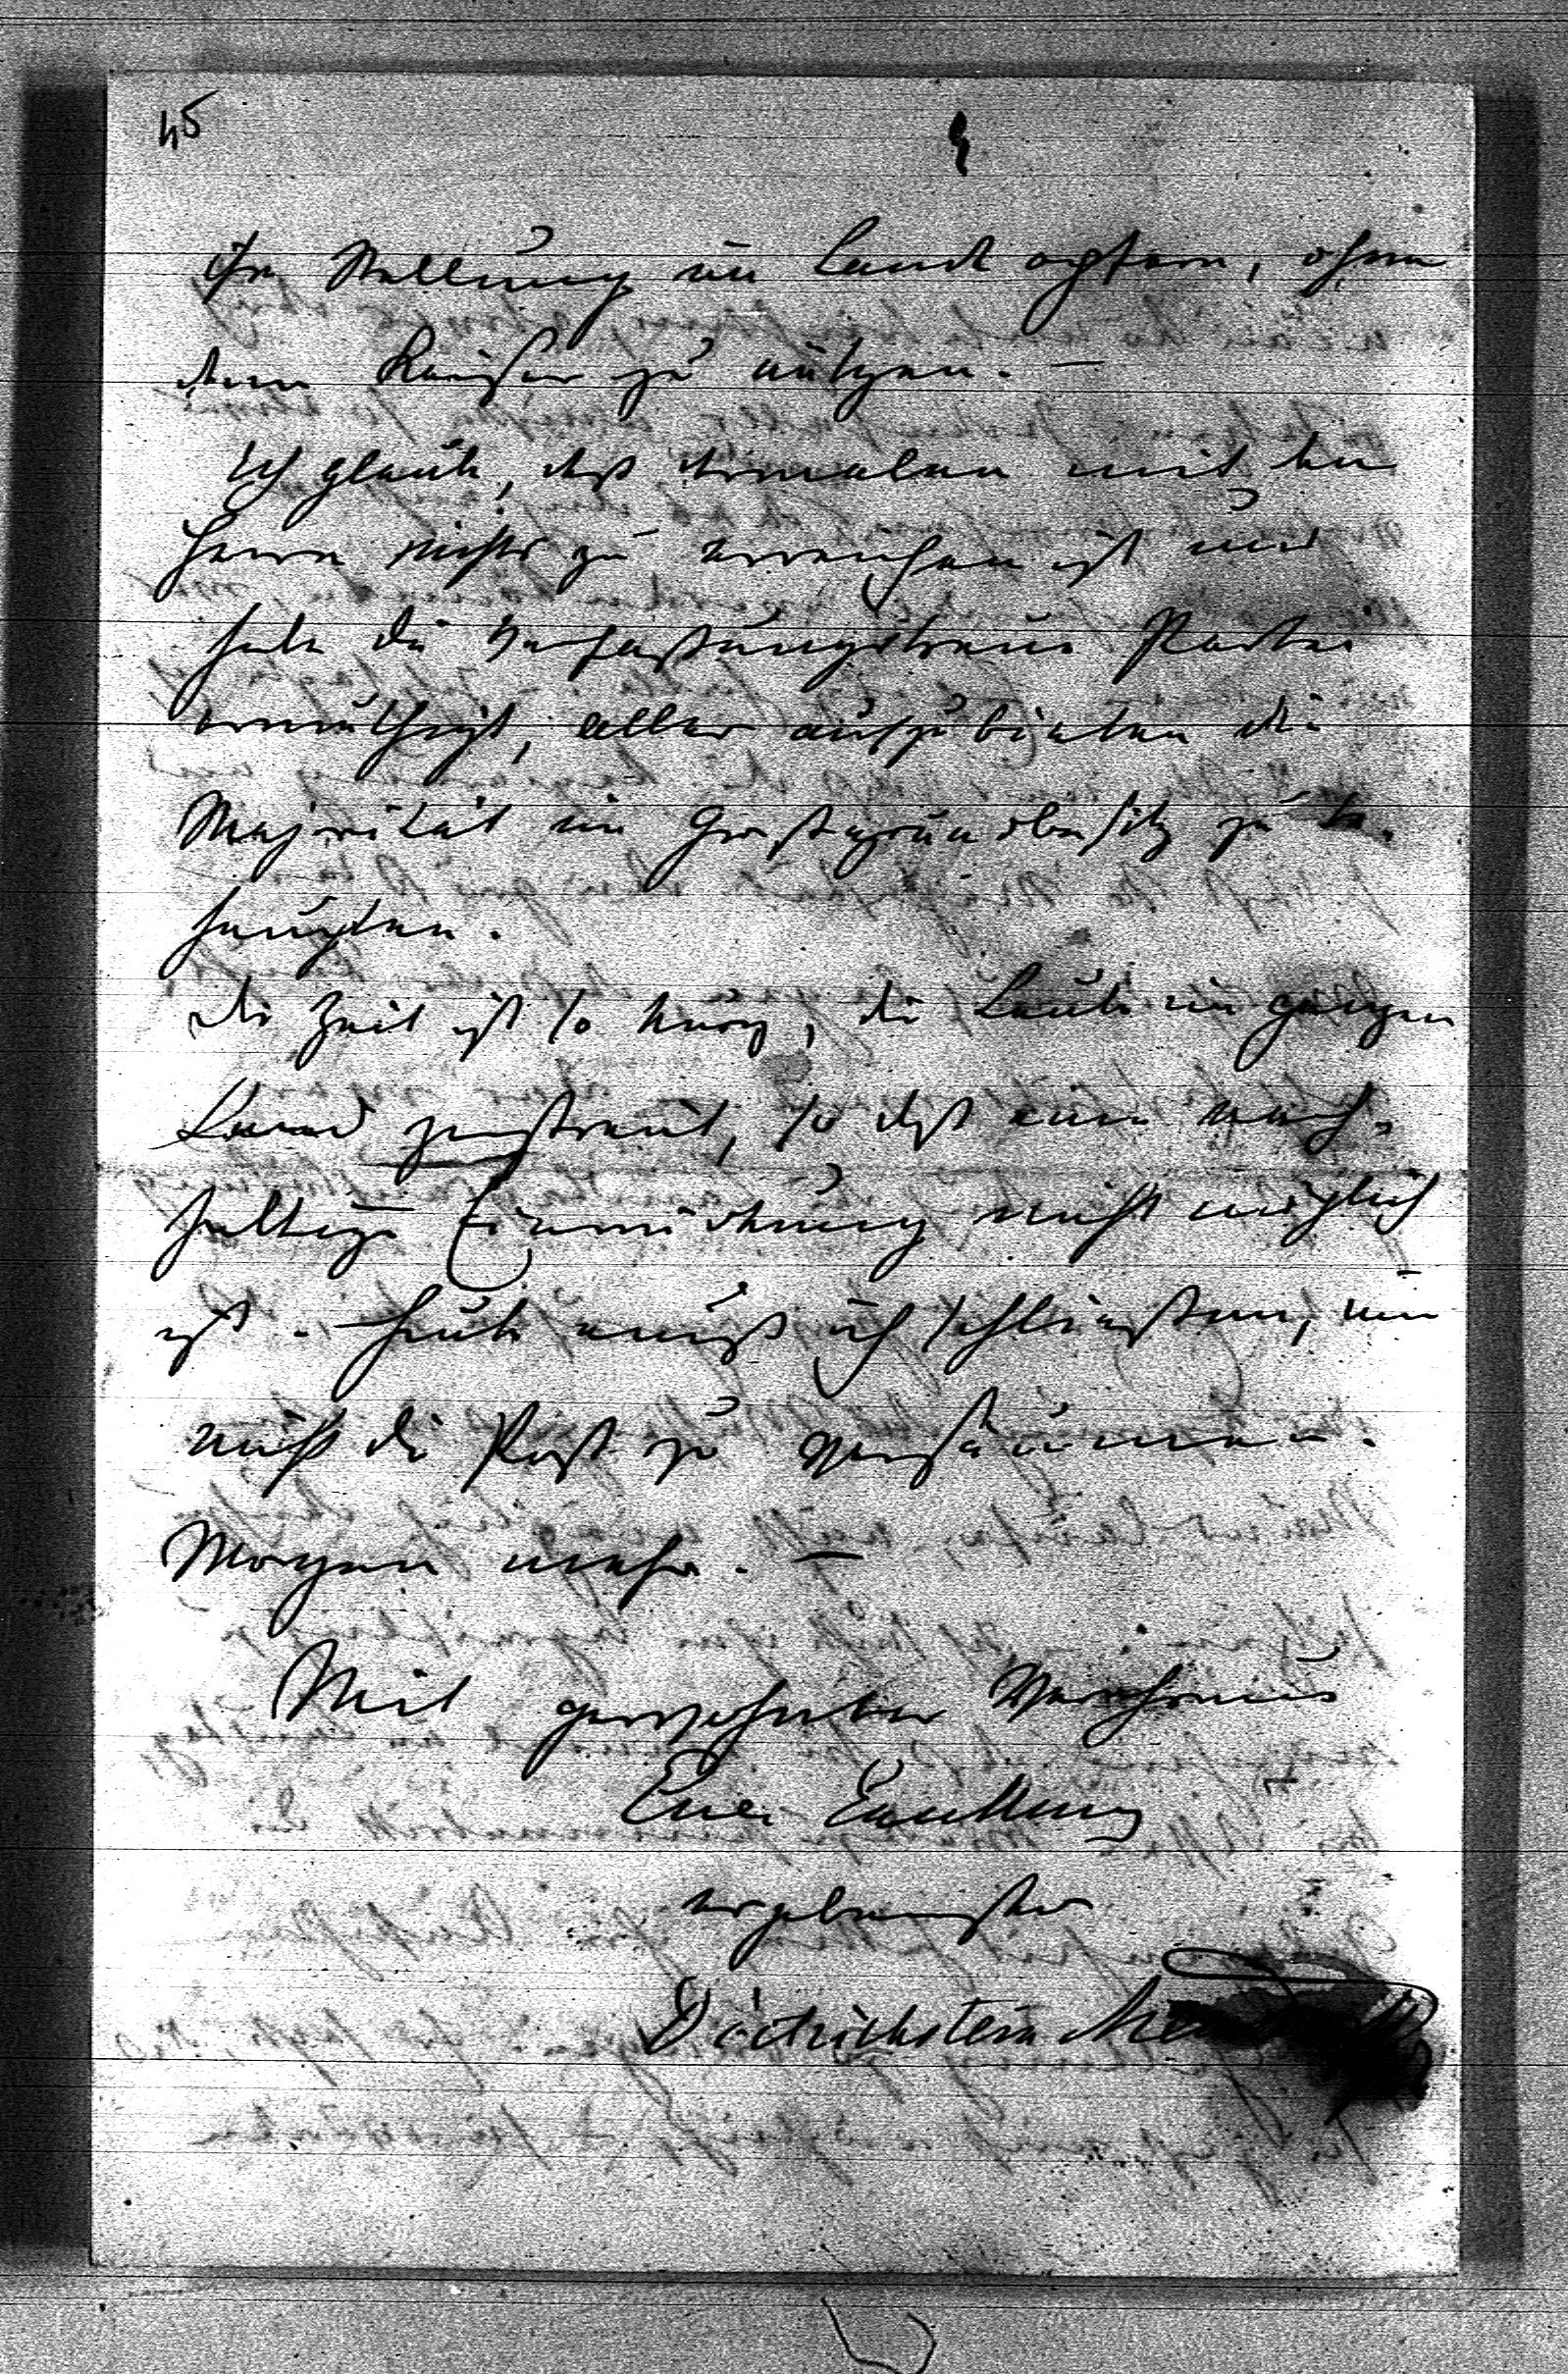 45
ihre Stellung im Lande opfern, ohne
dem Kaiser zu nützen. —
Ich glaube, daß dermalen mit den
Herrn nichts zu erreichen ist und
habe die Verfaßungstreue Partei
ermuthigt, alles aufzubieten die
Majorität im Großgrundbesitz zu be-
haupten.
Die Zeit ist so kurz, die Leute im ganzen
Land zerstreut, so daß eine nach-
haltige Einwirkung nicht möglich
ist. Heute muß ich schließen, um
nicht die Post zu versäumen.
Morgen mehr. —
Mit
Euer Excellenz
ergebenster
Dietrichstein